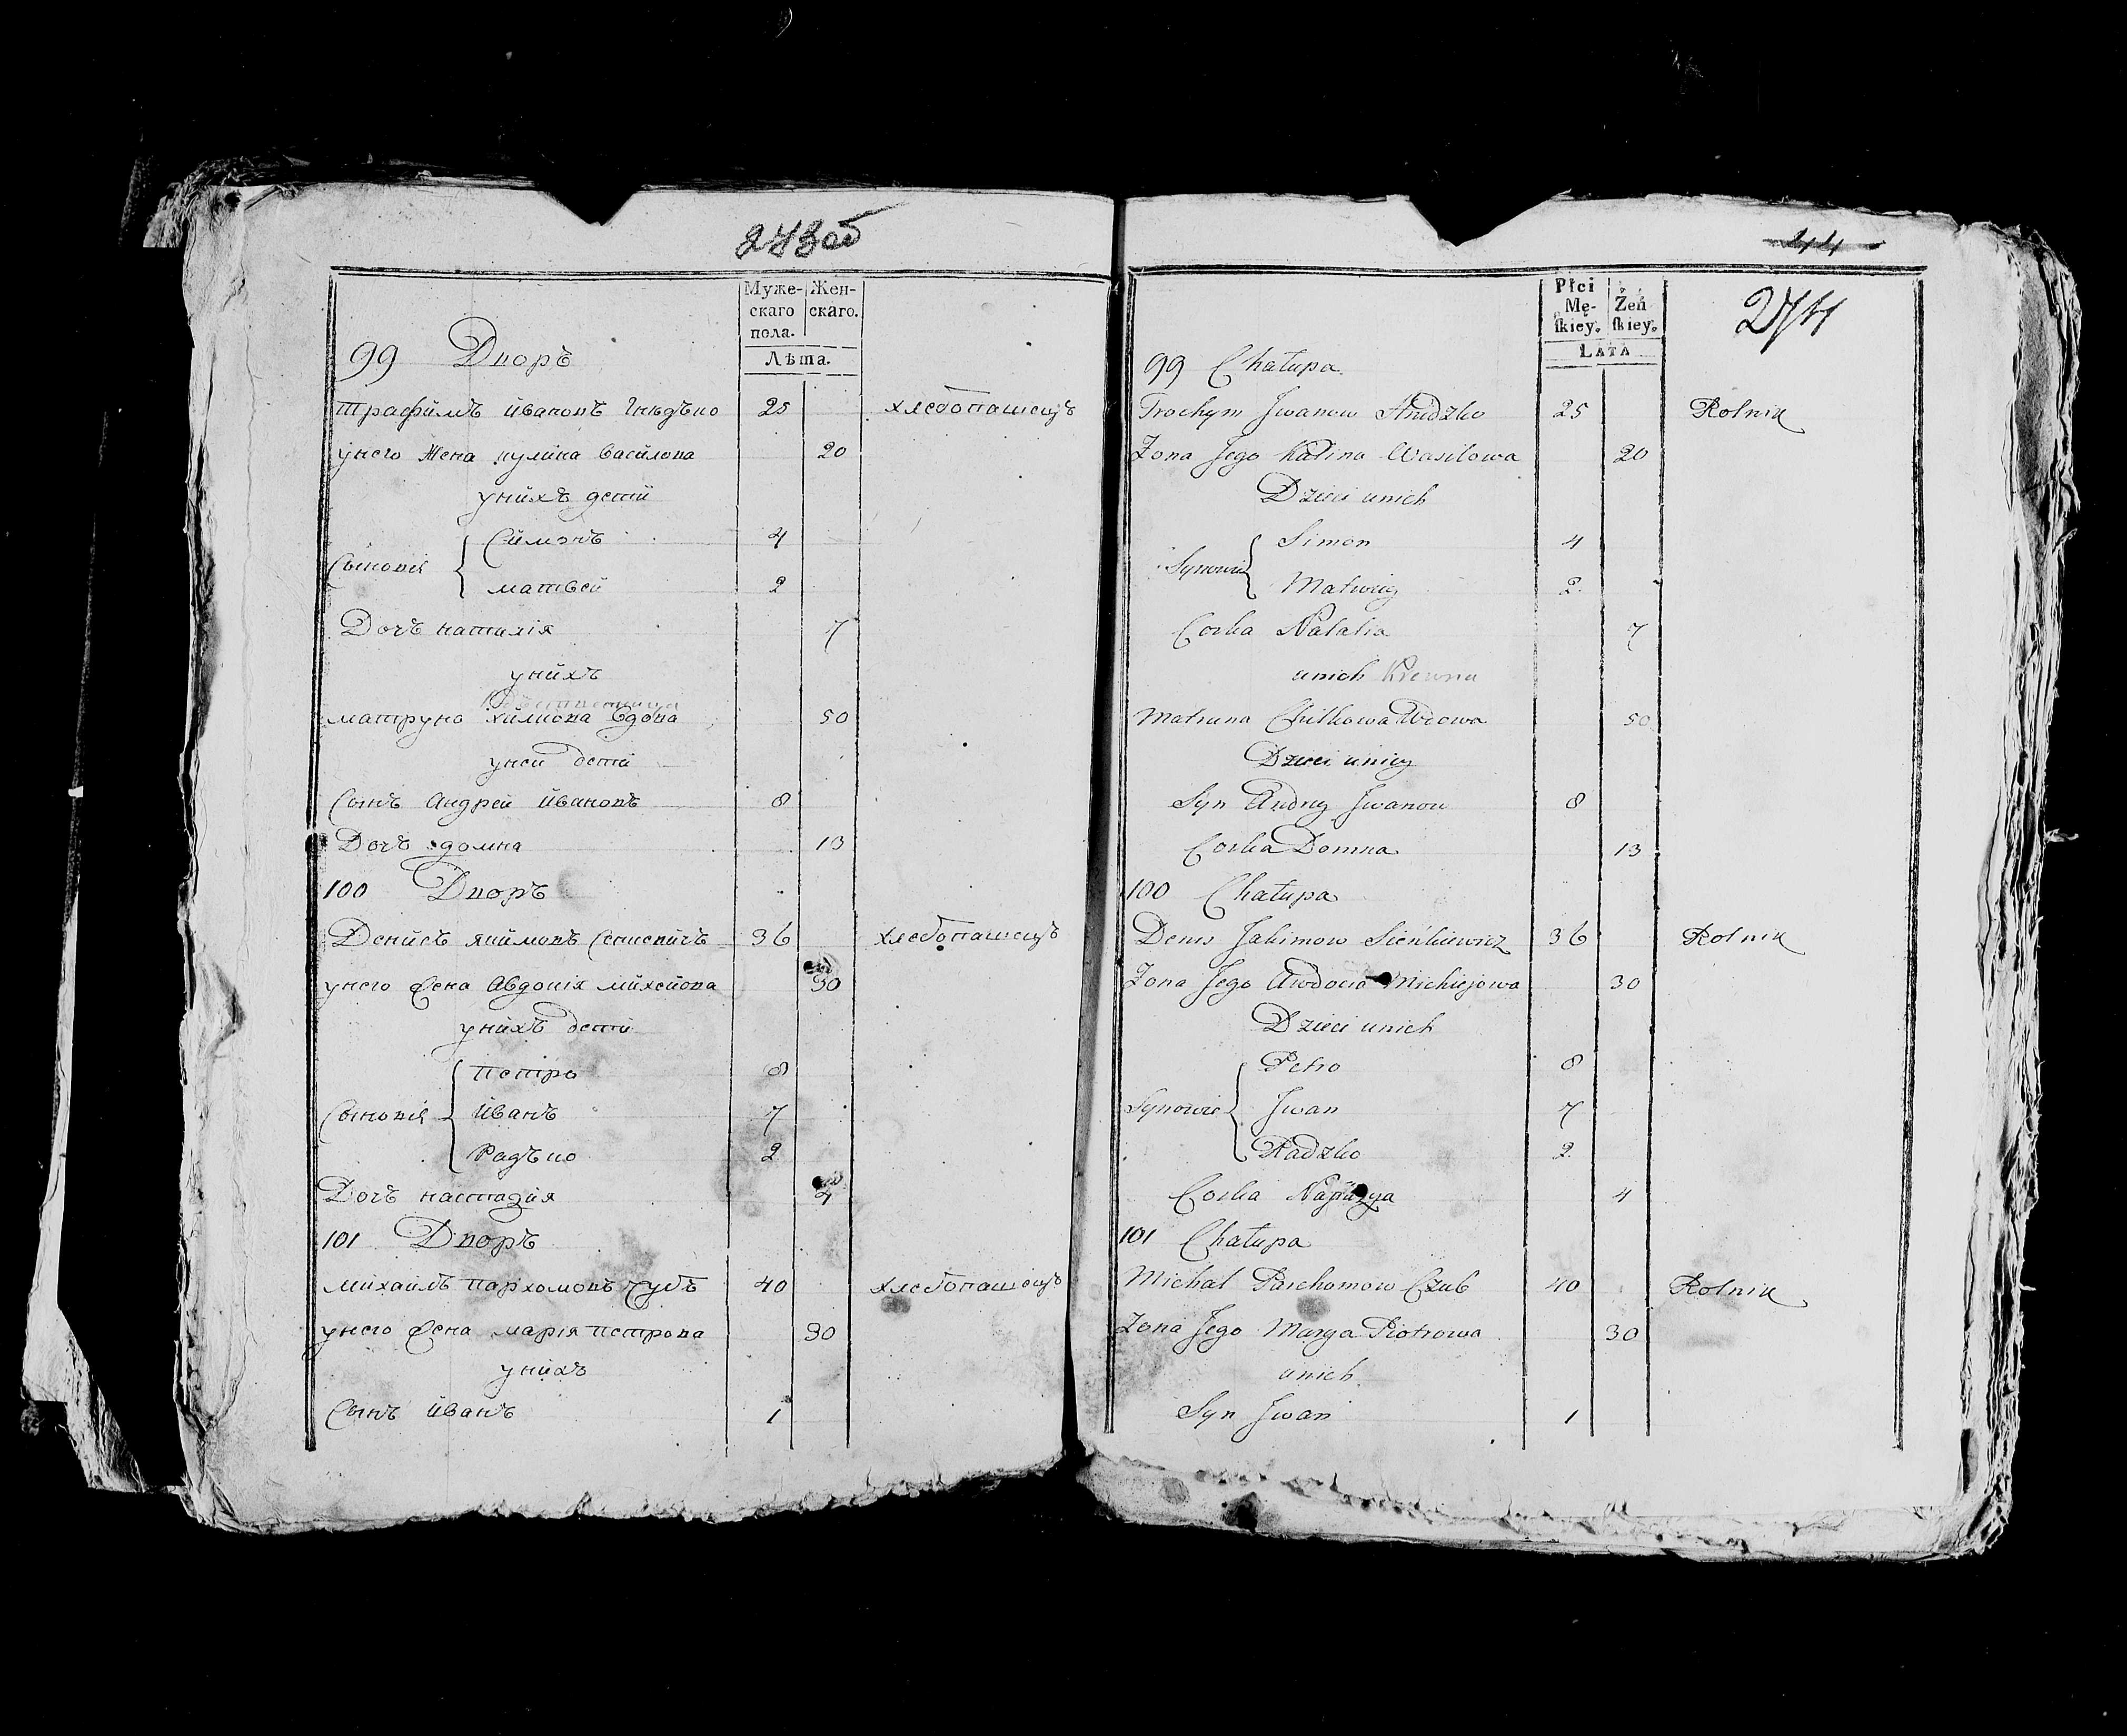 273об
Муже- Жен-
скаго скаго.
пола.
Лѣта.
99 Дворъ
трафимъ ивановъ Гнѣдъко 25 хлебопашецъ
унего жена кулина василова 20
унихъ дети
Симонъ 4
Сыновія
матвей 2
Дочъ наталія 7
унихъ
матруна хилкова вдова 50
уней дети
Сынъ андрей ивановъ 8
Дочъ домна 13
100 Дворъ
Денисъ якимовъ Сенкевичъ 36 хлебопашецъ
унего жена Авдокія михейова 30
унихъ дети
петро 8
Сыновія иванъ 7
Радъко 2
Дочъ настазия 4
101 Дворъ
михаилъ пархомовъ чубъ 40 хлебопашецъ
унего жена марія петрова 30
унихъ
Сынъ иванъ 1
44
274
Płci
Mę- Żeń
ſkiey. ſkiey.
LATA
99 Chałupa
Trochym Jwanow Hnidzko 25 Rolnik
Żona Jego Kulina Wasilowa 20
Dzieci unich
Simon 4
Synowie
Matwiey 2
Corka Natalia 7
unich Krewna
Matruna Chilkowa Wdowa 50
Dzieci uniey
Syn Andrey Jwanow 8
Corka Domna 13
100 Chałupa
Denis Jakimow Sieńkiewicz 36 Rolnik
Żona Jego Awdocia Michiejowa 30
Dzieci unich
Petro 8
Synowie Jwan 7
Radzko 2
Corka 4
101 Chałupa
Michał Parchomow Czub 40 Rolnik
Żona Jego Marya Piotrowa 30
unich
Syn Jwan 1